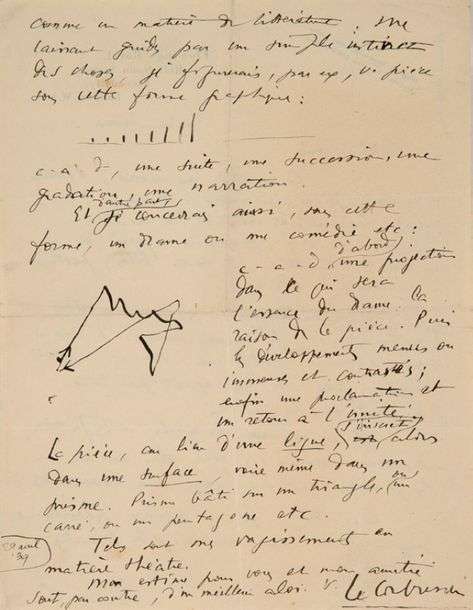 comme en matière de littérature. Me
laissant guider par un simple instinct
des choses je figurerais, par ex, v. pièce
sous cette forme graphique :
c-à-d, une suite, une succession, une
gradation, une narration.
Et d'autre part je concevrais ainsi, sous cette
forme, un drame ou une comédie etc :
c-a-d d'abord une projection
dans ce qui sera
l'essence du drame. La
raison de la pièce. Puis
les développements menus ou
immenses et contrastés ;
enfin une proclamation et
un retour à l'unité.
La pièce, au lieu d'une ligne, s'inscrit alors
dans une surface, voire même dans un
prisme. Prisme bâti sur un triangle, ou un
carré, ou un pentagone etc.
Tels sont mes vagissements en
matière théâtre.
Mon estime pour vous et mon amitié
sont, par contre, d'un meilleur aloi. v.
Le Corbusier
avril
39